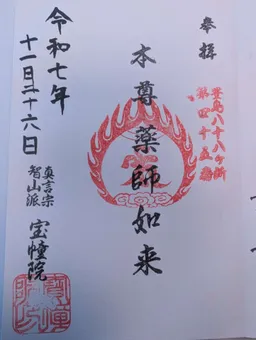 奉拝
豊島八十八ヶ所
第四十五番
本尊薬師如来
真言宗
智山派
宝幢院
令和七年
十一月二十六日